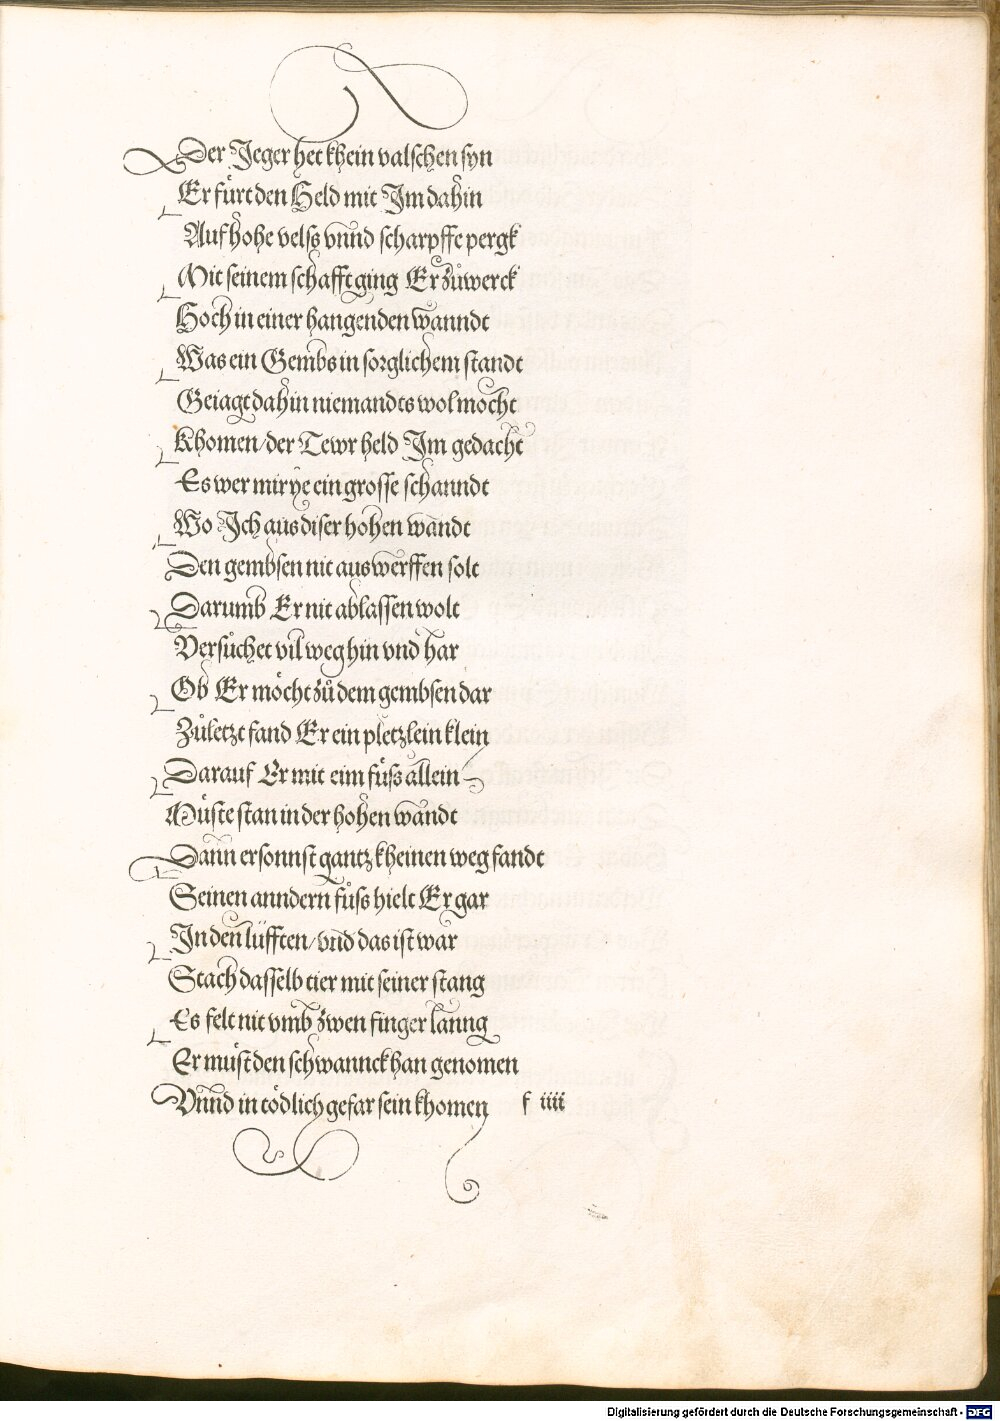 Der Jeger het khein valschen syn
Er fürt den Held mit Im dahin
Auf hohe velß vnnd scharpffe pergk
Mit seinem schafft ging Er zůwerck
Hoch in einer hangenden wanndt
Was ein Gembs in sorglichem standt
Geiagt dahin niemandts wol mocht
Khomen/der Tewr held Im gedacht
Es wer mir ye ein grosse schanndt
Wo Ich aus diser hohen wandt
Den gembsen nit auswerffen solt
Darumb Er nit ablassen wolt
Versůchet vil weg hin vnd har
Ob Er möcht zů dem gembsen dar
Zůletzt fand Er ein pletzlein klein
Darauf Er mit eim fůß allein
Müste stan in der hohen wandt
Dann er sonnst gantz kheinen weg fandt
Seinen anndern fůß hielt Er gar
In den lüfften/vnd das ist war
Stach dasselb tier mit seiner stang
Es felt nit vmb zwen finger lanng
Er můst den schwannck han genomen
Vnnd in tödlich gefar sein khomen f iiii
Digitalisierung gefördert durch die Deutsche Forschungsgemeinschaft - DFG